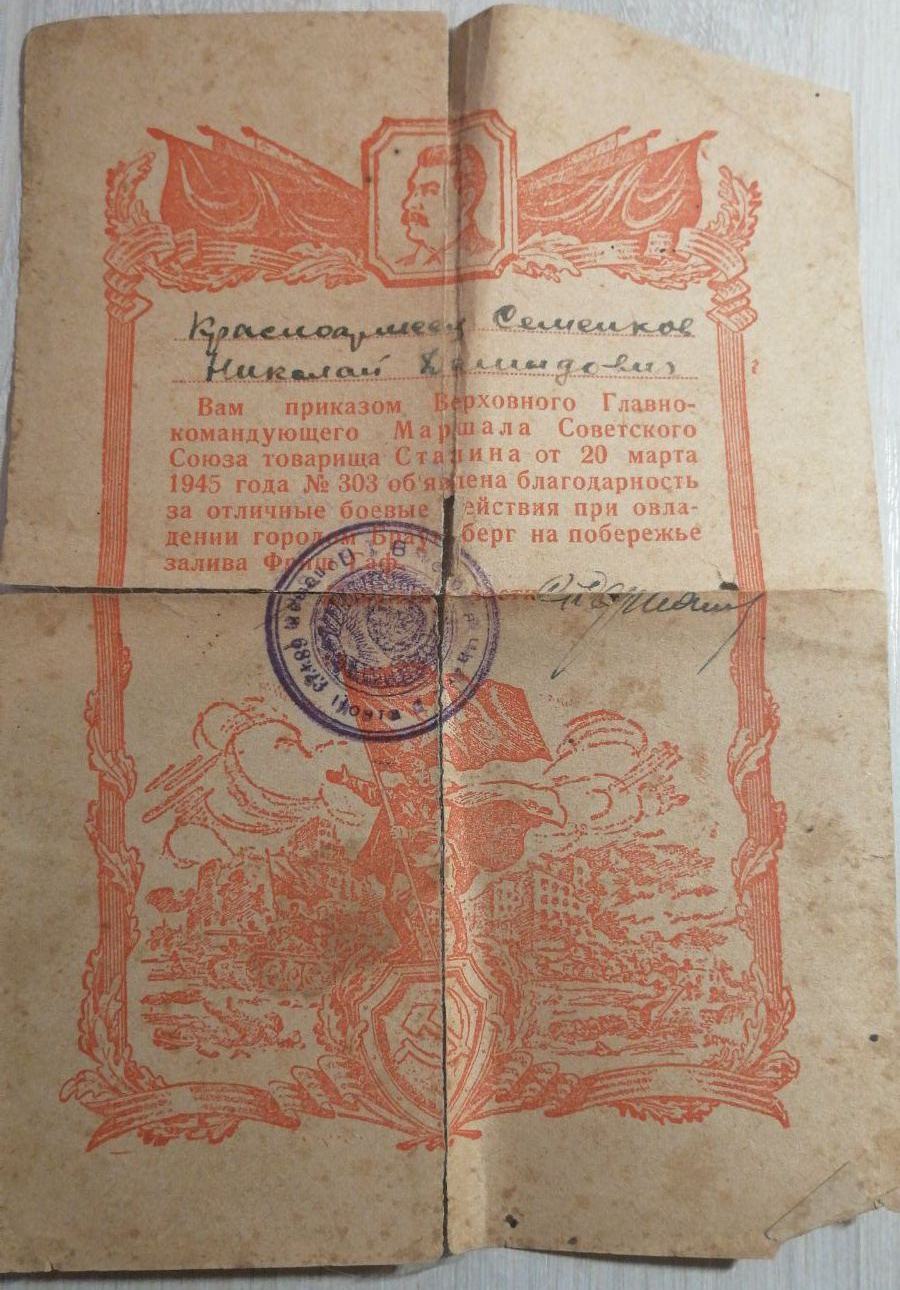 Красноармеец Семенков
Николай
Вам приказом Верховного Главно-
командующего Маршала Советского
Союза товарища Сталина от 20 марта
1945 года № 303 об'явлена благодарность
за отличные боевые действия при овла-
дении городом Браунсберг на побережье
залива Фриш-Гаф.